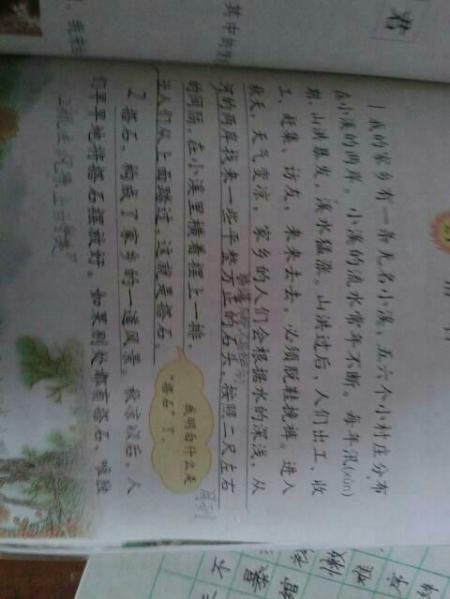 搭石
1 我的家乡有一条无名小溪,五六个小村庄分布
在小溪的两岸。小溪的流水常年不断。每年汛(xùn)
期,山洪暴发,溪水猛涨。山洪过后,人们出工、收
工、赶集、访友,来来去去,必须脱鞋挽裤。进入
秋天,天气变凉,家乡的人们会根据水的深浅,从
河的两岸找来一些平整方正的石头,按照二尺左右
的间隔,在小溪里横着摆上一排,
让人们从上面踏过,这就是搭石。
我明白什么是
“搭石”了。
2 搭石,构成了家乡的一道风景。秋凉以后,人
们早早地将搭石摆放好。如果别处都有搭石,唯独